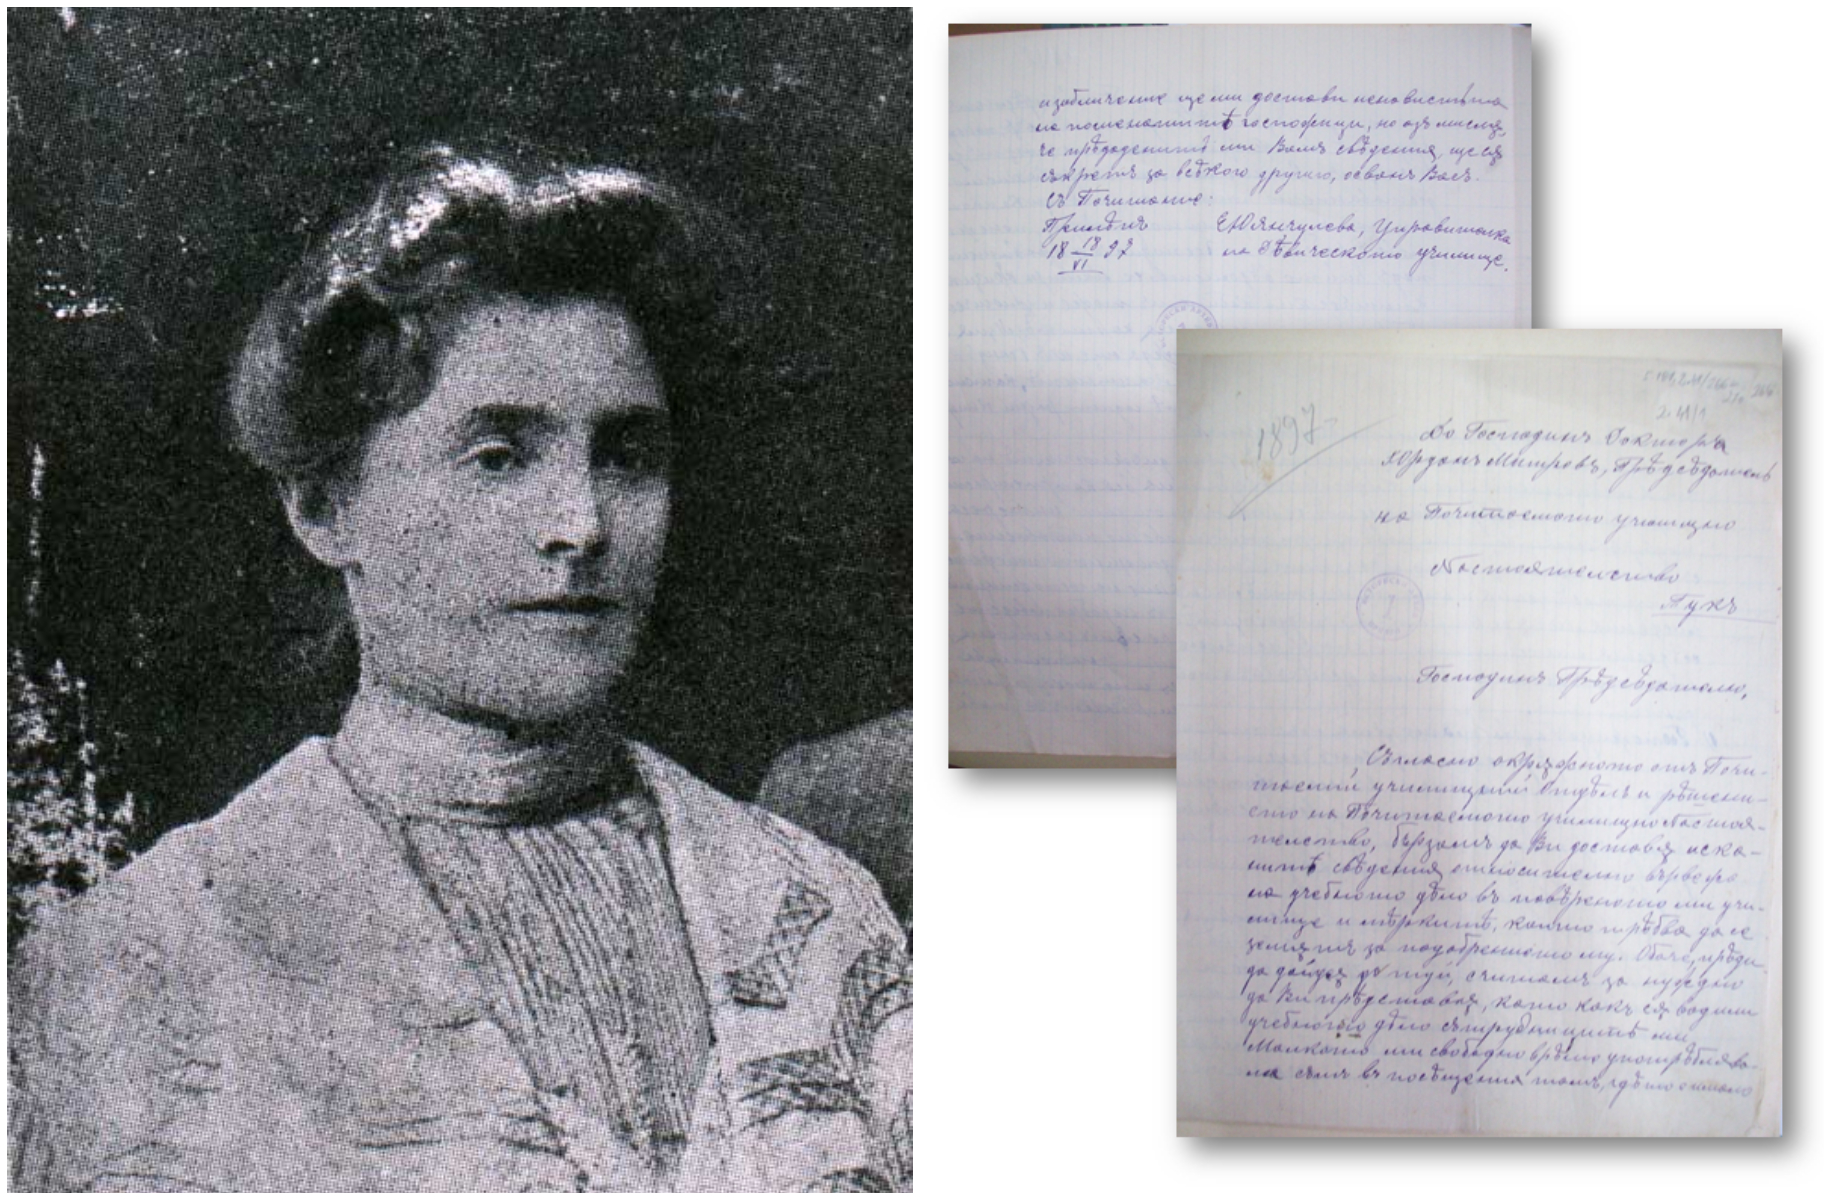 изобличение ще ми достави ненавистьта
на поменатитѣ госпожици, но азъ мисля,
че прѣдаденитѣ ми Вамъ свѣдения, ще сѫ
секретъ за всѣкого другиго, освѣнъ Васъ.
Съ Почитание:
Прилѣпъ
18 18/VI 97
Е. Юянчулева, Управителка
на Дѣвическото училище.
1897
2.41/1
До Господинъ Доктора
Юрданъ Митровъ, Прѣдсѣдатель
на Почитаемото училищно
Настоятелство
Тукъ
Господинъ Прѣдсѣдателю,
Съгласно окрѫжното отъ Почи-
таемий училищний Отдѣлъ и рѣшени-
ето на Почитаемото училищно Настоя-
телство, бързамъ да Ви доставѭ иска-
нитѣ свѣдения относително вървежа
на учебното дѣло въ повѣреното ми учи-
лище и мѣркитѣ, които трѣбва да се
земѫтъ за подобрението му. Обаче, прѣди
да дойдѫ до туй, считамъ за нуждно
да Ви прѣдставѭ, като какъ сѫ водили
учебното дѣло сътрудницитѣ ми
Малкото ми свободно врѣме употрѣблява-
ла съмъ въ посѣщения тамъ, гдѣто